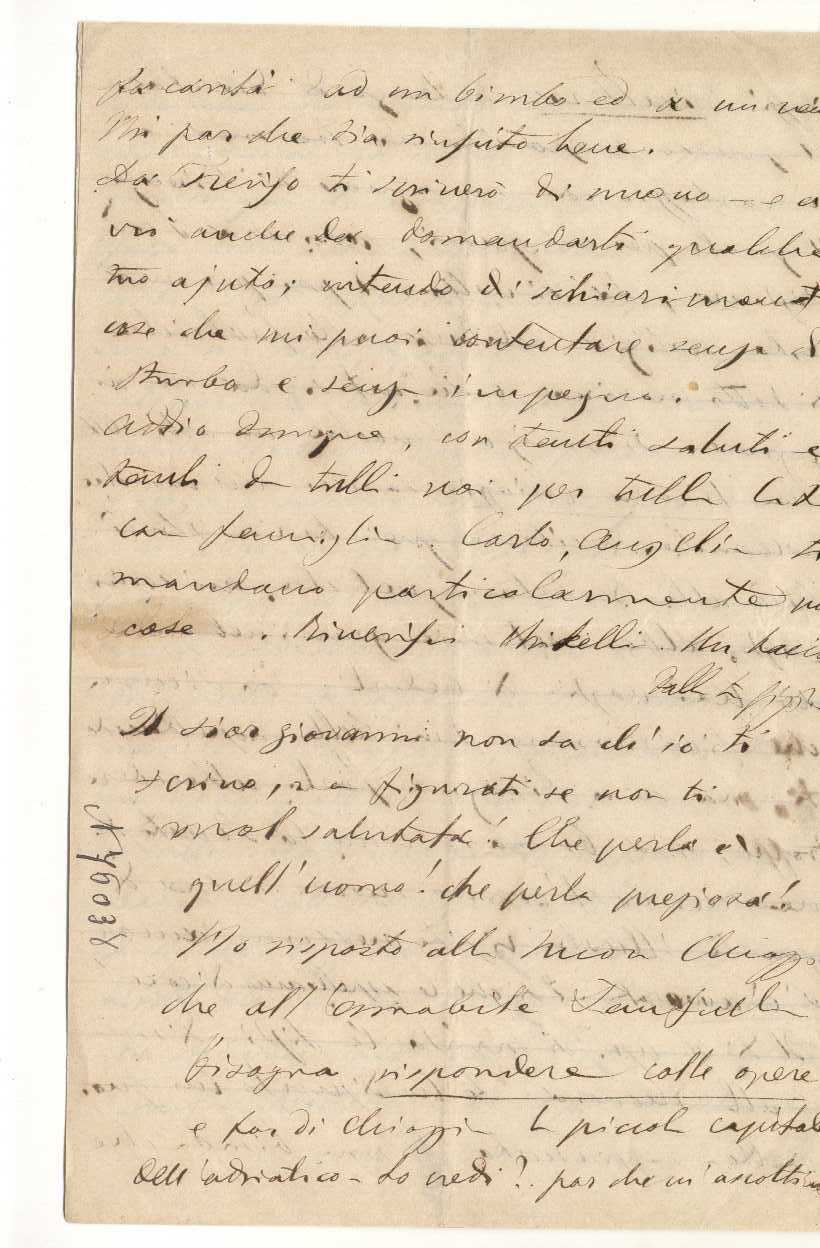 la carità ad un bimbo ed a un
Mi par che sia riuscito bene.
Da Treviso ti scriverò di nuovo — e a
vrò anche da domandarti qualche
tuo ajuto; intendo di schiariment
cose che mi puoi contentare senza di
sturbo e senza impegno.
Addio dunque, con tanti saluti e
tanti da tutti noi per tutta la t
cara famiglia. Carlo, Angelia ti
mandano particolarmente
cose. Riverisci. Un bacio
dalla tua
Il sior giovanni non sa ch'io ti
scrivo, ma figurati se non ti
vuol salutata! Che perla è
quell'uomo! che perla preziosa!
Ho risposto alla
che all'amabile
Bisogna rispondere colle opere
e far di Chioggia la piccola capitale
dell'adriatico — Lo vedi? par che m'ascolti
N 46037